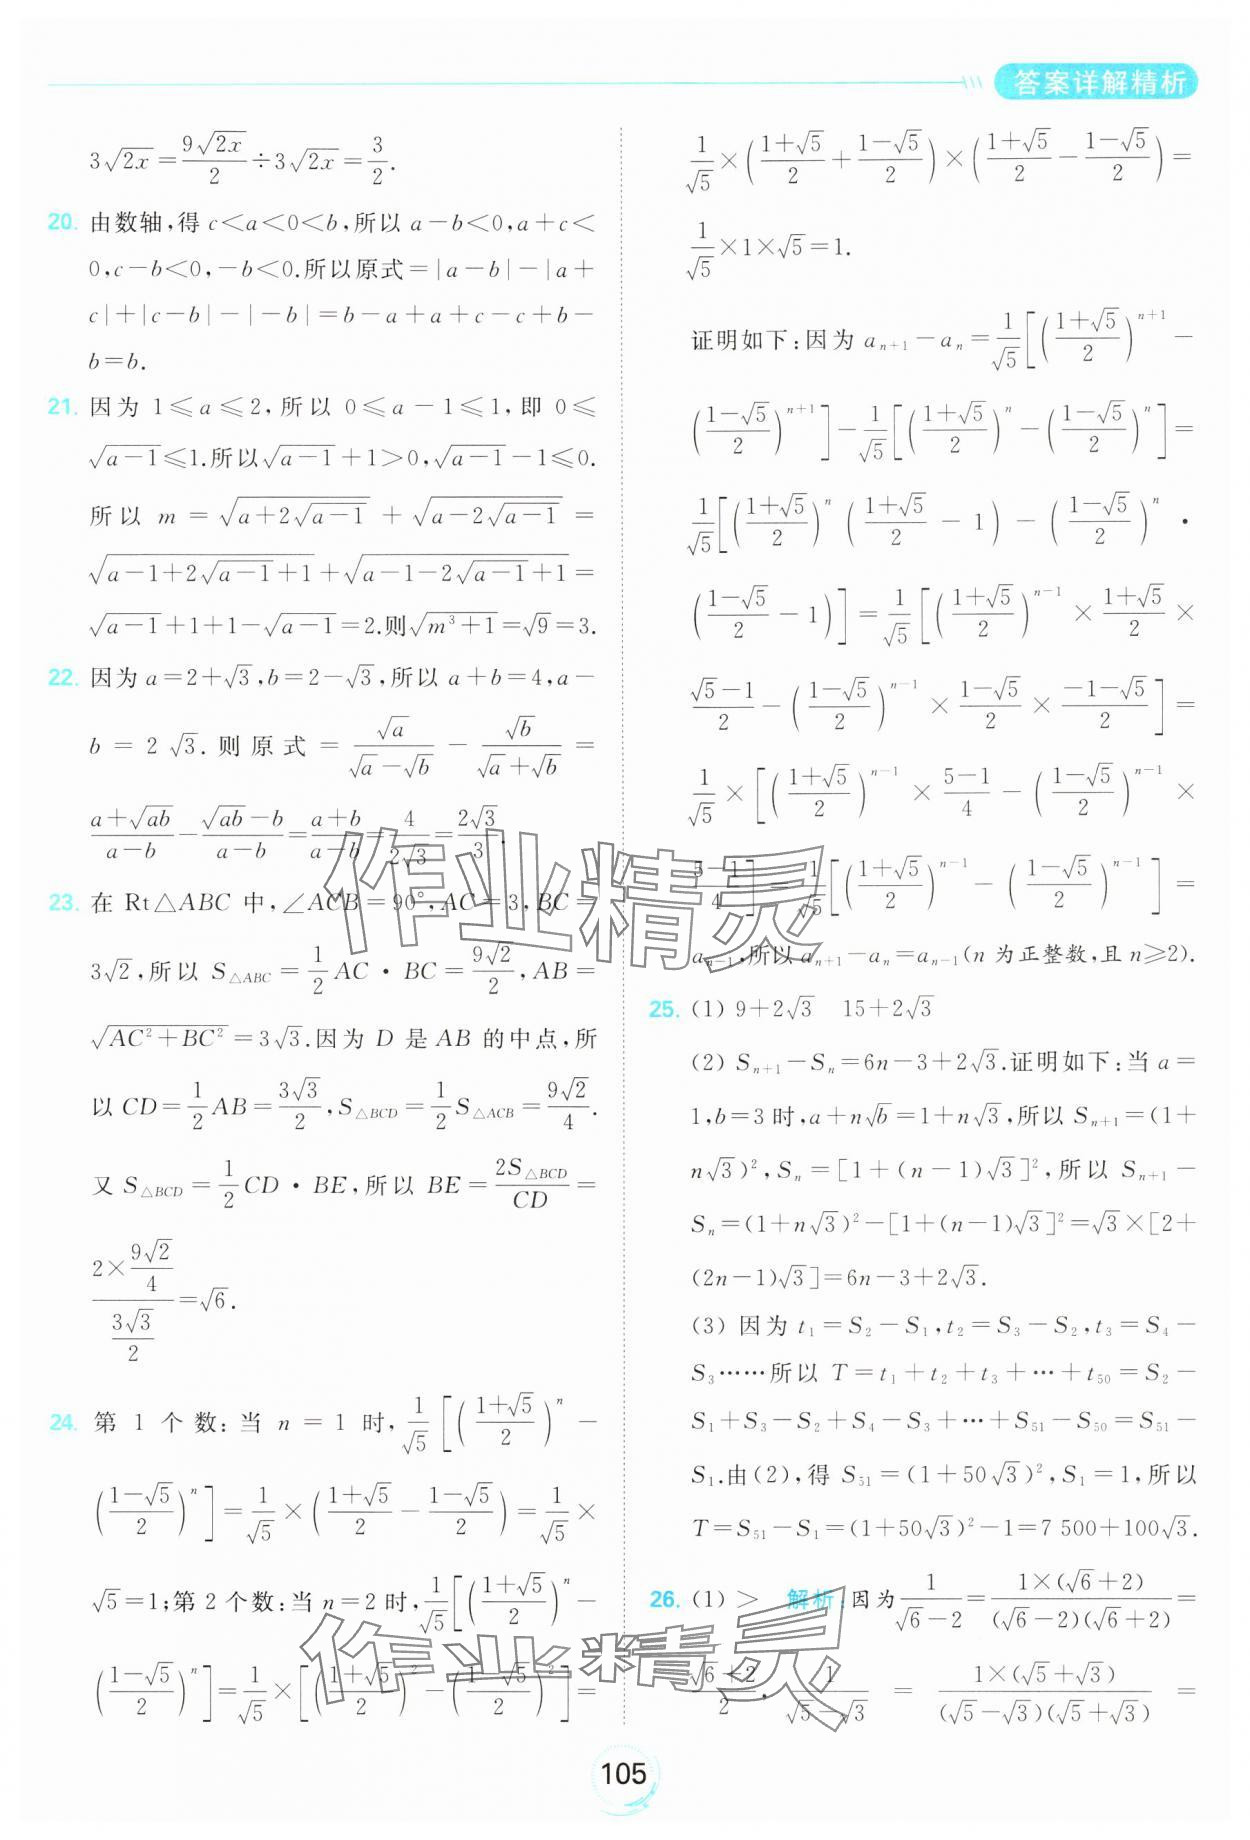 答案详解精析
3√(2x)=9√(2x)/2÷3√(2x)=3/2.
20. 由数轴,得 c<a<0<b,所以 a-b<0,a+c<
0,c-b<0,-b<0.所以原式=|a-b|-|a+
c|+|c-b|-|-b|=b-a+a+c-c+b-
b=b.
21. 因为 1≤a≤2,所以 0≤a-1≤1,即 0≤
√(a-1)≤1.所以√(a-1)+1>0,√(a-1)-1≤0.
所以 m=√(a+2√(a-1))+√(a-2√(a-1))=
√(a-1+2√(a-1)+1)+√(a-1-2√(a-1)+1)=
√(a-1)+1+1-√(a-1)=2.则√(m³+1)=√9=3.
22. 因为 a=2+√3,b=2-√3,所以 a+b=4,a-
b=2√3.则原式=√a/(√a-√b)-√b/(√a+√b)=
(a+√(ab))/(a-b)-(√(ab)-b)/(a-b)=(a+b)/(a-b)=4/(2√3)=2√3/3.
23. 在 Rt△ABC 中,∠ACB=90°,AC=3,BC=
3√2,所以 S△ABC=1/2 AC·BC=9√2/2,AB=
√(AC²+BC²)=3√3.因为 D 是 AB 的中点,所
以 CD=1/2 AB=3√3/2,S△BCD=1/2 S△ACB=9√2/4.
又 S△BCD=1/2 CD·BE,所以 BE=2S△BCD/CD=
(2×9√2/4)/(3√3/2)=√6.
24. 第 1 个数:当 n=1 时,1/√5[((1+√5)/2)ⁿ-
((1-√5)/2)ⁿ]=1/√5×((1+√5)/2-(1-√5)/2)=1/√5×
√5=1;第 2 个数:当 n=2 时,1/√5[((1+√5)/2)ⁿ-
((1-√5)/2)ⁿ]=1/√5×[((1+√5)/2)²-((1-√5)/2)²]=
1/√5×((1+√5)/2+(1-√5)/2)×((1+√5)/2-(1-√5)/2)=
1/√5×1×√5=1.
证明如下:因为 aₙ₊₁-aₙ=1/√5[((1+√5)/2)ⁿ⁺¹-
((1-√5)/2)ⁿ⁺¹]-1/√5[((1+√5)/2)ⁿ-((1-√5)/2)ⁿ]=
1/√5[((1+√5)/2)ⁿ((1+√5)/2-1)-((1-√5)/2)ⁿ·
((1-√5)/2-1)]=1/√5[((1+√5)/2)ⁿ⁻¹×(1+√5)/2×
(√5-1)/2-((1-√5)/2)ⁿ⁻¹×(1-√5)/2×(-1-√5)/2]=
1/√5×[((1+√5)/2)ⁿ⁻¹×(5-1)/4-((1-√5)/2)ⁿ⁻¹×
(5-1)/4]=1/√5[((1+√5)/2)ⁿ⁻¹-((1-√5)/2)ⁿ⁻¹]=
aₙ₋₁,所以 aₙ₊₁-aₙ=aₙ₋₁(n 为正整数,且 n≥2).
25. (1) 9+2√3 15+2√3
(2) Sₙ₊₁-Sₙ=6n-3+2√3.证明如下:当 a=
1,b=3 时,a+n√b=1+n√3,所以 Sₙ₊₁=(1+
n√3)²,Sₙ=[1+(n-1)√3]²,所以 Sₙ₊₁-
Sₙ=(1+n√3)²-[1+(n-1)√3]²=√3×[2+
(2n-1)√3]=6n-3+2√3.
(3) 因为 t₁=S₂-S₁,t₂=S₃-S₂,t₃=S₄-
S₃……所以 T=t₁+t₂+t₃+…+t₅₀=S₂-
S₁+S₃-S₂+S₄-S₃+…+S₅₁-S₅₀=S₅₁-
S₁.由(2),得 S₅₁=(1+50√3)²,S₁=1,所以
T=S₅₁-S₁=(1+50√3)²-1=7 500+100√3.
26. (1) > 解析:因为1/(√6-2)=1×(√6+2)/((√6-2)(√6+2))=
(√6+2)/2,1/(√5-√3)=1×(√5+√3)/((√5-√3)(√5+√3))=
作业精灵
作业精灵
105